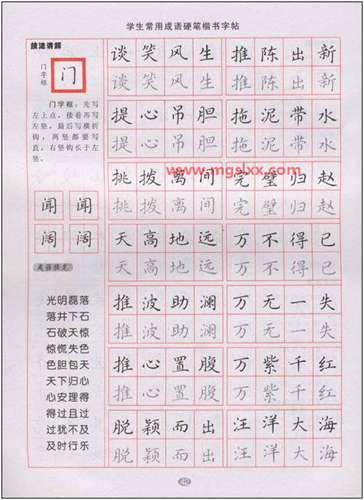 学生常用成语硬笔楷书字帖
技法讲解
门字框
门
门字框：先写
左上点，接着再写
左竖，最后写横折
钩，两竖都要写
直，右竖钩长于左
竖。
闻 闻
阔 阔
成语补充
光明磊落
落井下石
石破天惊
惊慌失色
色胆包天
天下归心
心安理得
得过且过
过犹不及
及时行乐
谈笑风生 推陈出新
谈笑风生 推陈出新
提心吊胆 拖泥带水
提心吊胆 拖泥带水
www.mgslxx.com
挑拨离间 完璧归赵
挑拨离间 完璧归赵
天高地远 万不得已
天高地远 万不得已
推波助澜 万无一失
推波助澜 万无一失
推心置腹 万紫千红
推心置腹 万紫千红
脱颖而出 汪洋大海
脱颖而出 汪洋大海